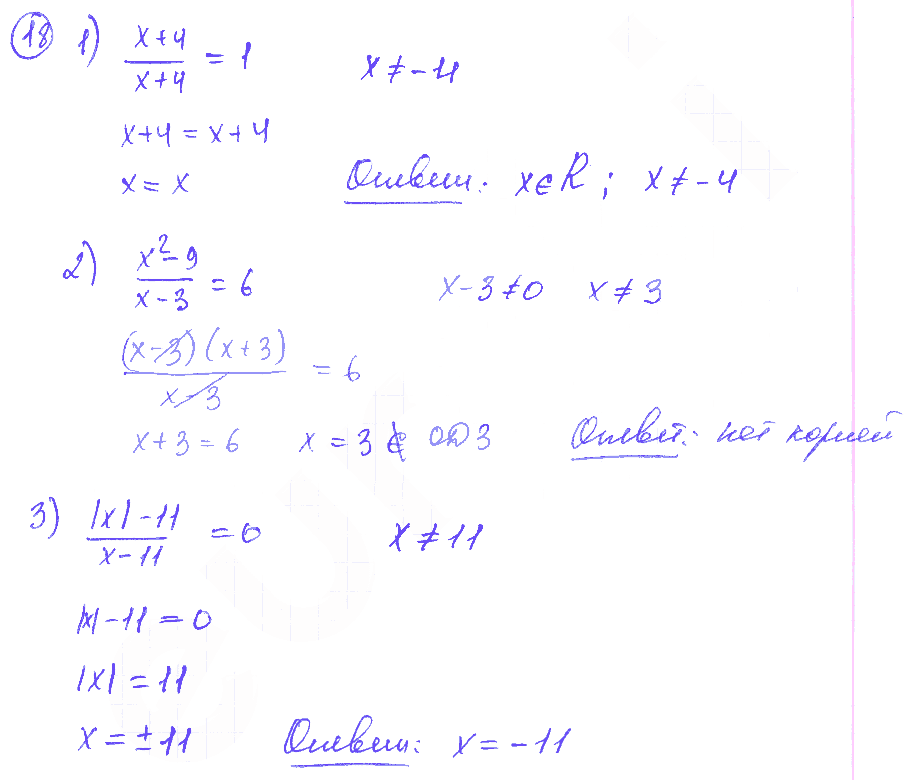 18 1) (x+4)/(x+4) = 1 x ≠ -4
x+4 = x+4
x = x Ответ: x ∈ R ; x ≠ -4
2) (x²-9)/(x-3) = 6 x-3 ≠ 0 x ≠ 3
((x-3)(x+3))/(x-3) = 6
x+3 = 6 x = 3 ∉ ОДЗ Ответ: нет корней
3) (|x|-11)/(x-11) = 0 x ≠ 11
|x| - 11 = 0
|x| = 11
x = ±11 Ответ: x = -11